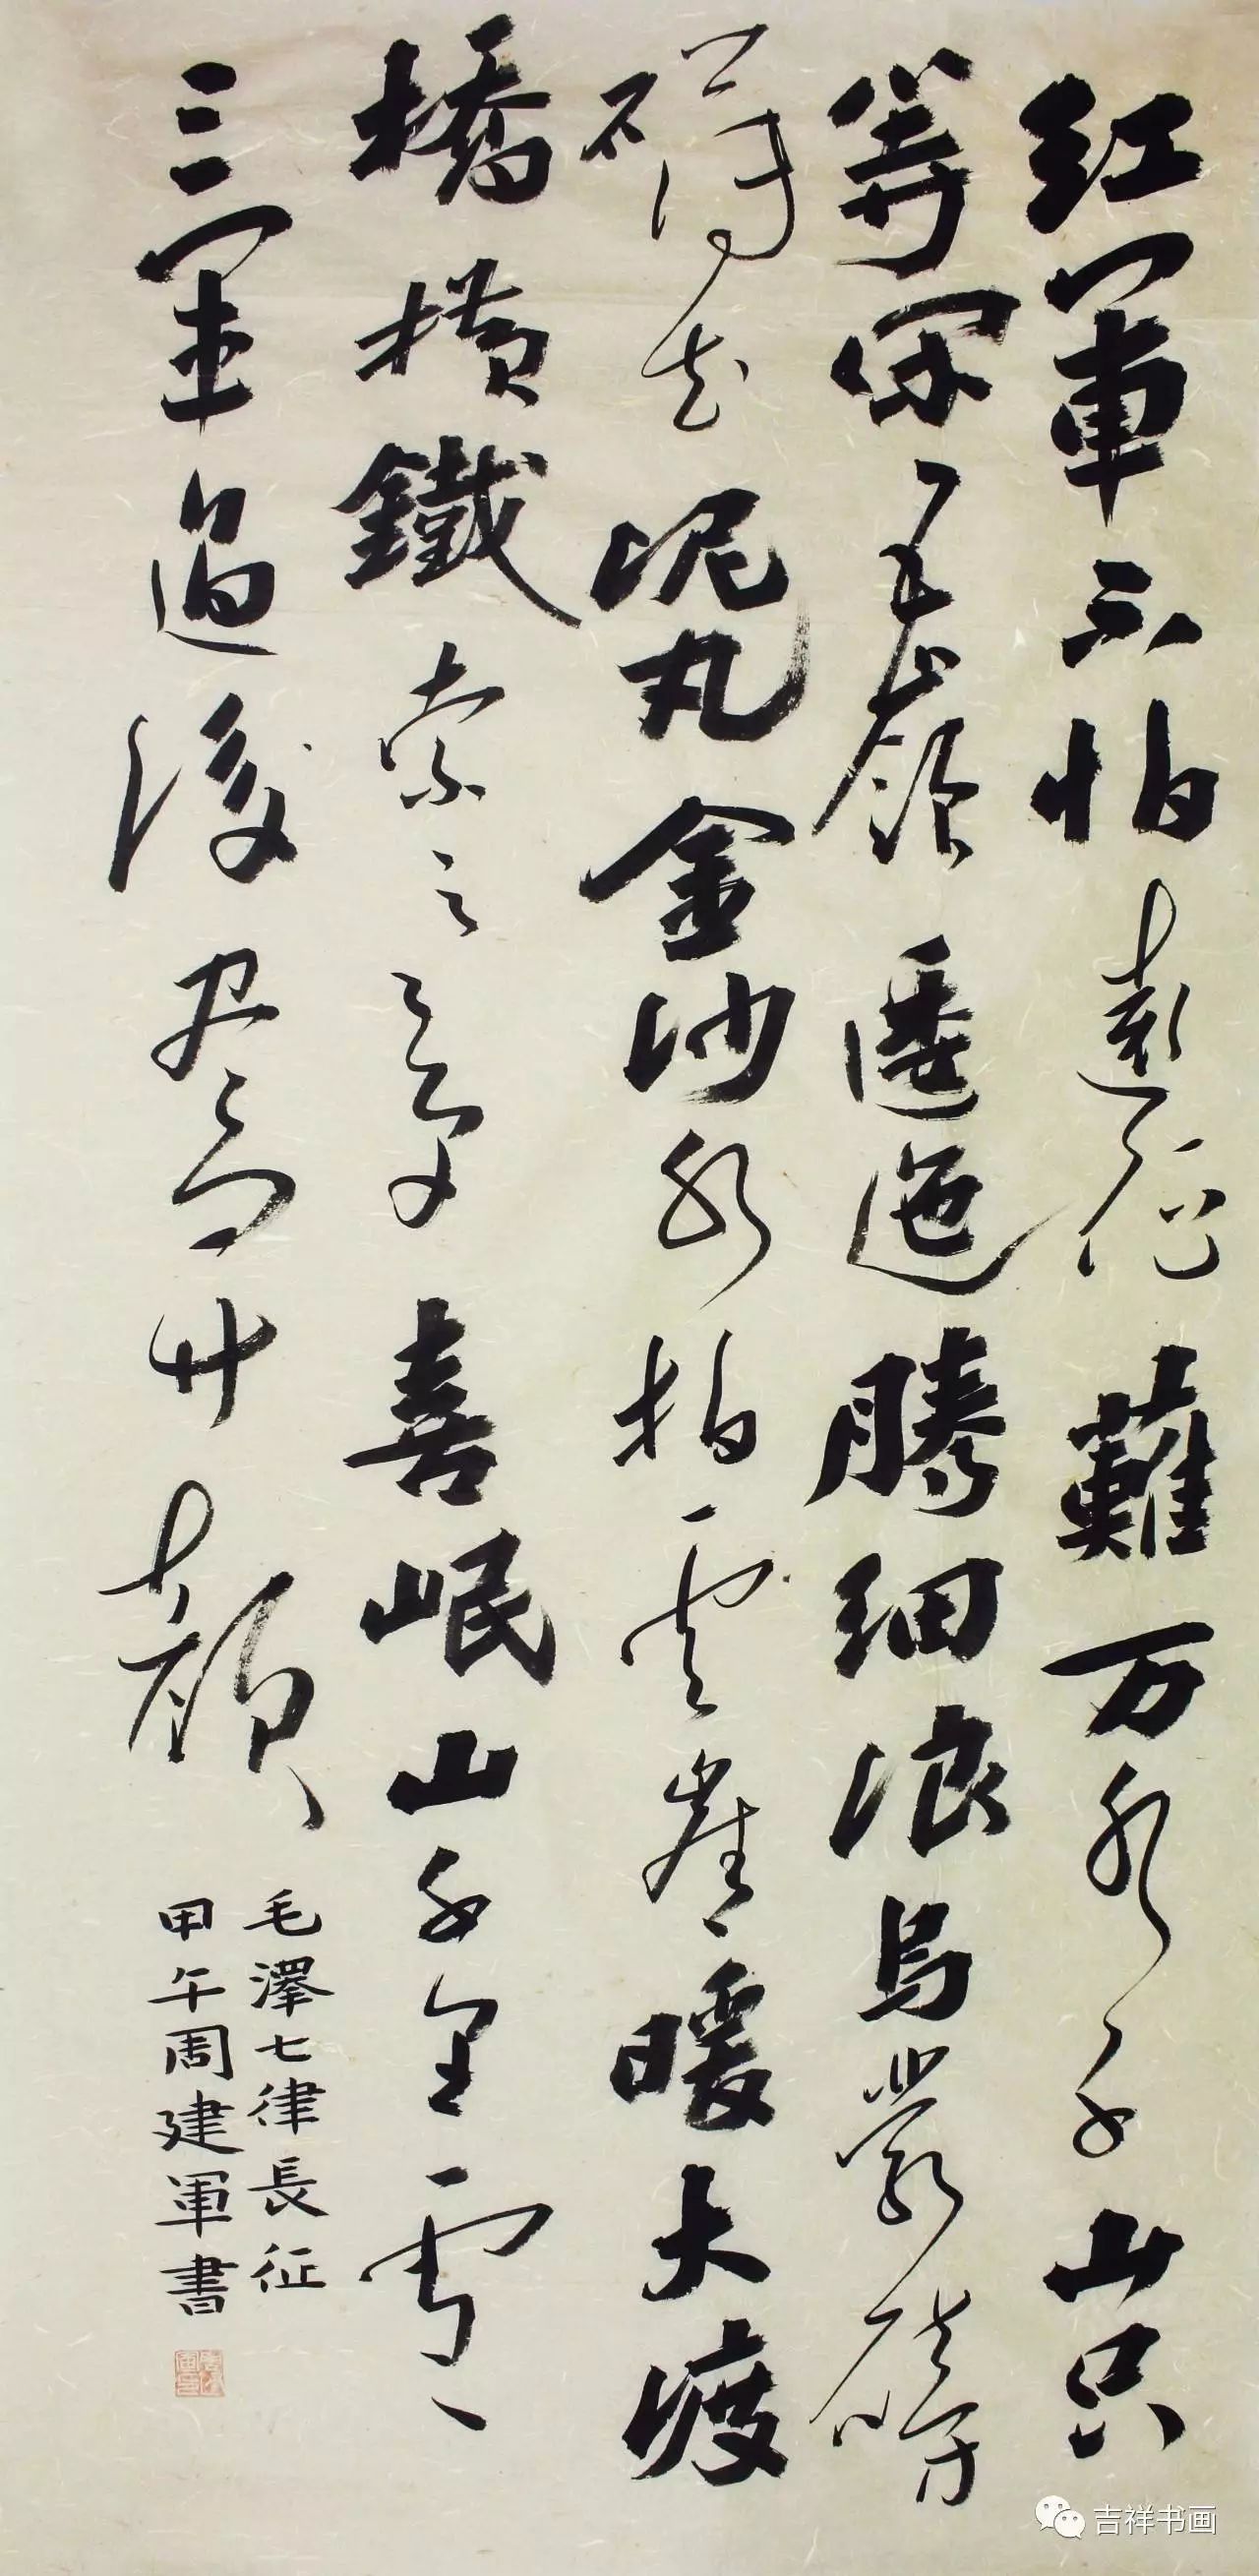 红軍不怕遠征難万水千山只
等闲五嶺逶迤騰细浪烏蒙磅
礴走泥丸金沙水拍雲崖暖大渡
橋横鐵索寒更喜岷山千里雪
三軍過後盡開顔
毛澤七律長征
甲午周建軍書
吉祥书画